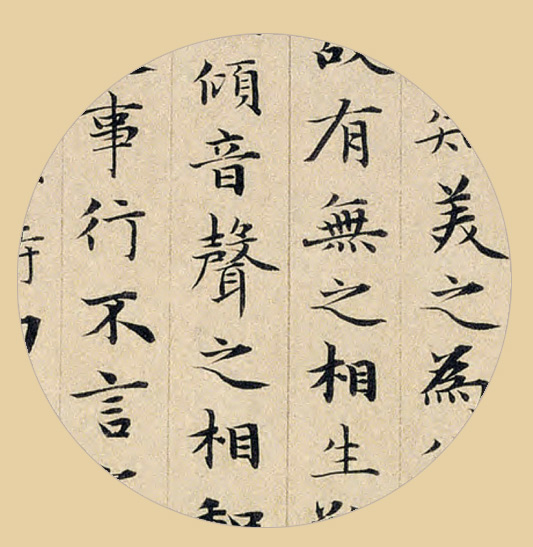 知美之為
故有無之相生
傾音聲之相和
事行不言